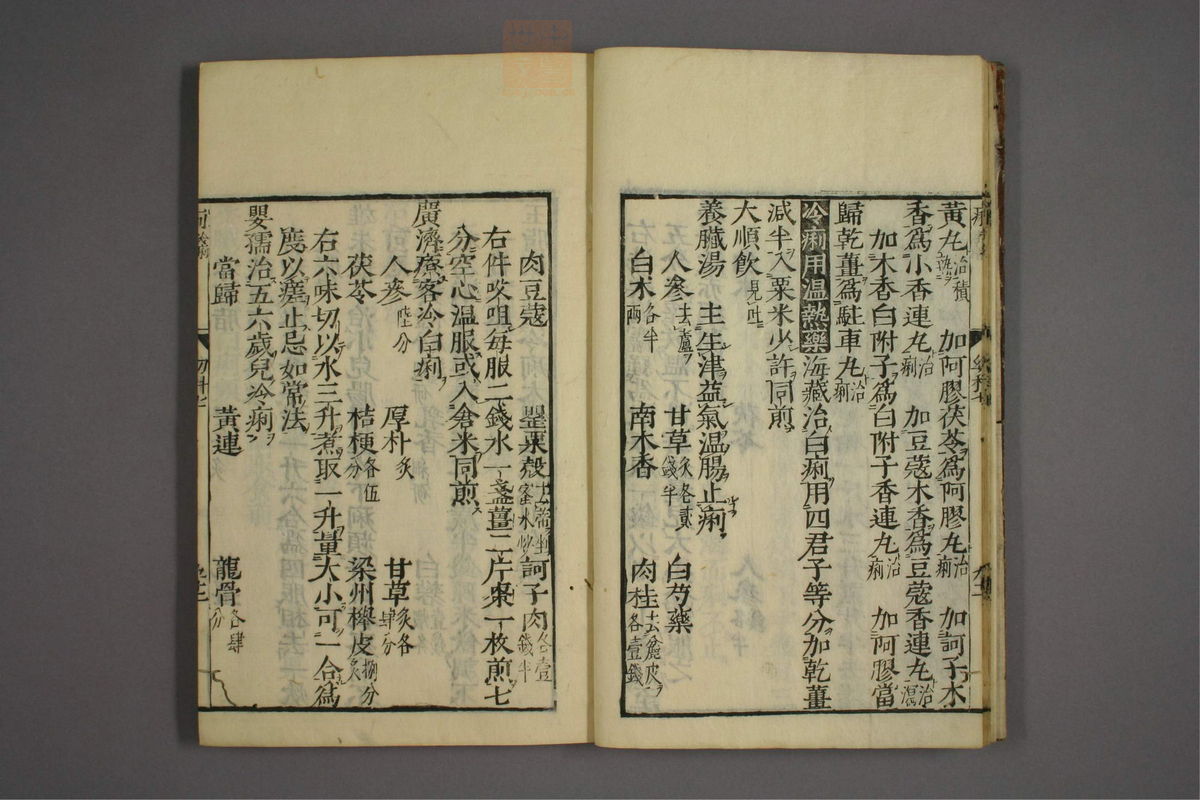 黃丸治積痢 加阿膠茯苓爲阿膠丸治痢 加訶子木
香爲小香連丸治痢 加豆蔻木香爲豆蔻香連丸治瀉
加木香白附子爲白附子香連丸治痢 加阿膠當
歸乾薑爲駐車丸治痢
冷痢用溫熱藥海藏治白痢用四君子等分加乾薑
減半入粟米少許同煎
大順飲見吐
養臟湯 主生津益氣溫腸止痢
人參去蘆 甘草炙各貳錢半 白芍藥
白朮各半兩 南木香 肉桂去麁皮各壹錢
肉豆蔻 罌粟殼去蒂蜜水炒 訶子肉各壹錢半
右件㕮咀每服二錢水一盞薑二片棗一枚煎七
分空心溫服或入倉米同煎
廣濟療客冷白痢
人參陸分 厚朴炙 甘草炙各肆分
茯苓 桔梗各伍分 梁州櫸皮捌分炙
右六味切以水三升煮取一升量大小可一合爲
度以瘥止忌如常法
嬰孺治五六歲兒冷痢
當歸 黃連 龍骨各肆分